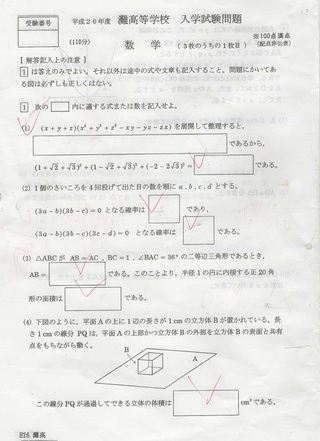 受験番号
平成26年度 灘高等学校 入学試験問題
(110分)
数学 (3枚のうちの1枚目)
※100点満点
(配点非公表)
【解答記入上の注意】
1 は答えのみでよい。それ以外は途中の式や文章も記入すること。問題にかいてあ
る図は必ずしも正しくはない。
1 次の 内に適する式または数を記入せよ。
(1) (x+y+z)(x²+y²+z²-xy-yz-zx) を展開して整理すると、
であるから、
(1+√2+√3)³+(1-√2+√3)³+(-2-2√3)³= である。
(2) 1個のさいころを4回投げて出た目の数を順に a, b, c, d とする。
(3a-b)(3b-c)=0 となる確率は であり、
(3a-b)(3b-c)(3c-d)=0 となる確率は である。
(3) △ABCが AB=AC , BC=1 , ∠BAC=36° の二等辺三角形であるとき、
AB= である。このことより、半径1の円に内接する正20角
形の面積は である。
(4) 下図のように、平面Aの上に1辺の長さが1cmの立方体Bが置かれている。長
さ1cmの線分PQが、平面Aの上部かつ立方体Bの外部を立方体Bの表面と共有
点をもちながら動く。
B
A
この線分PQが通過してできる立体の体積は cm³である。
H26 灘高